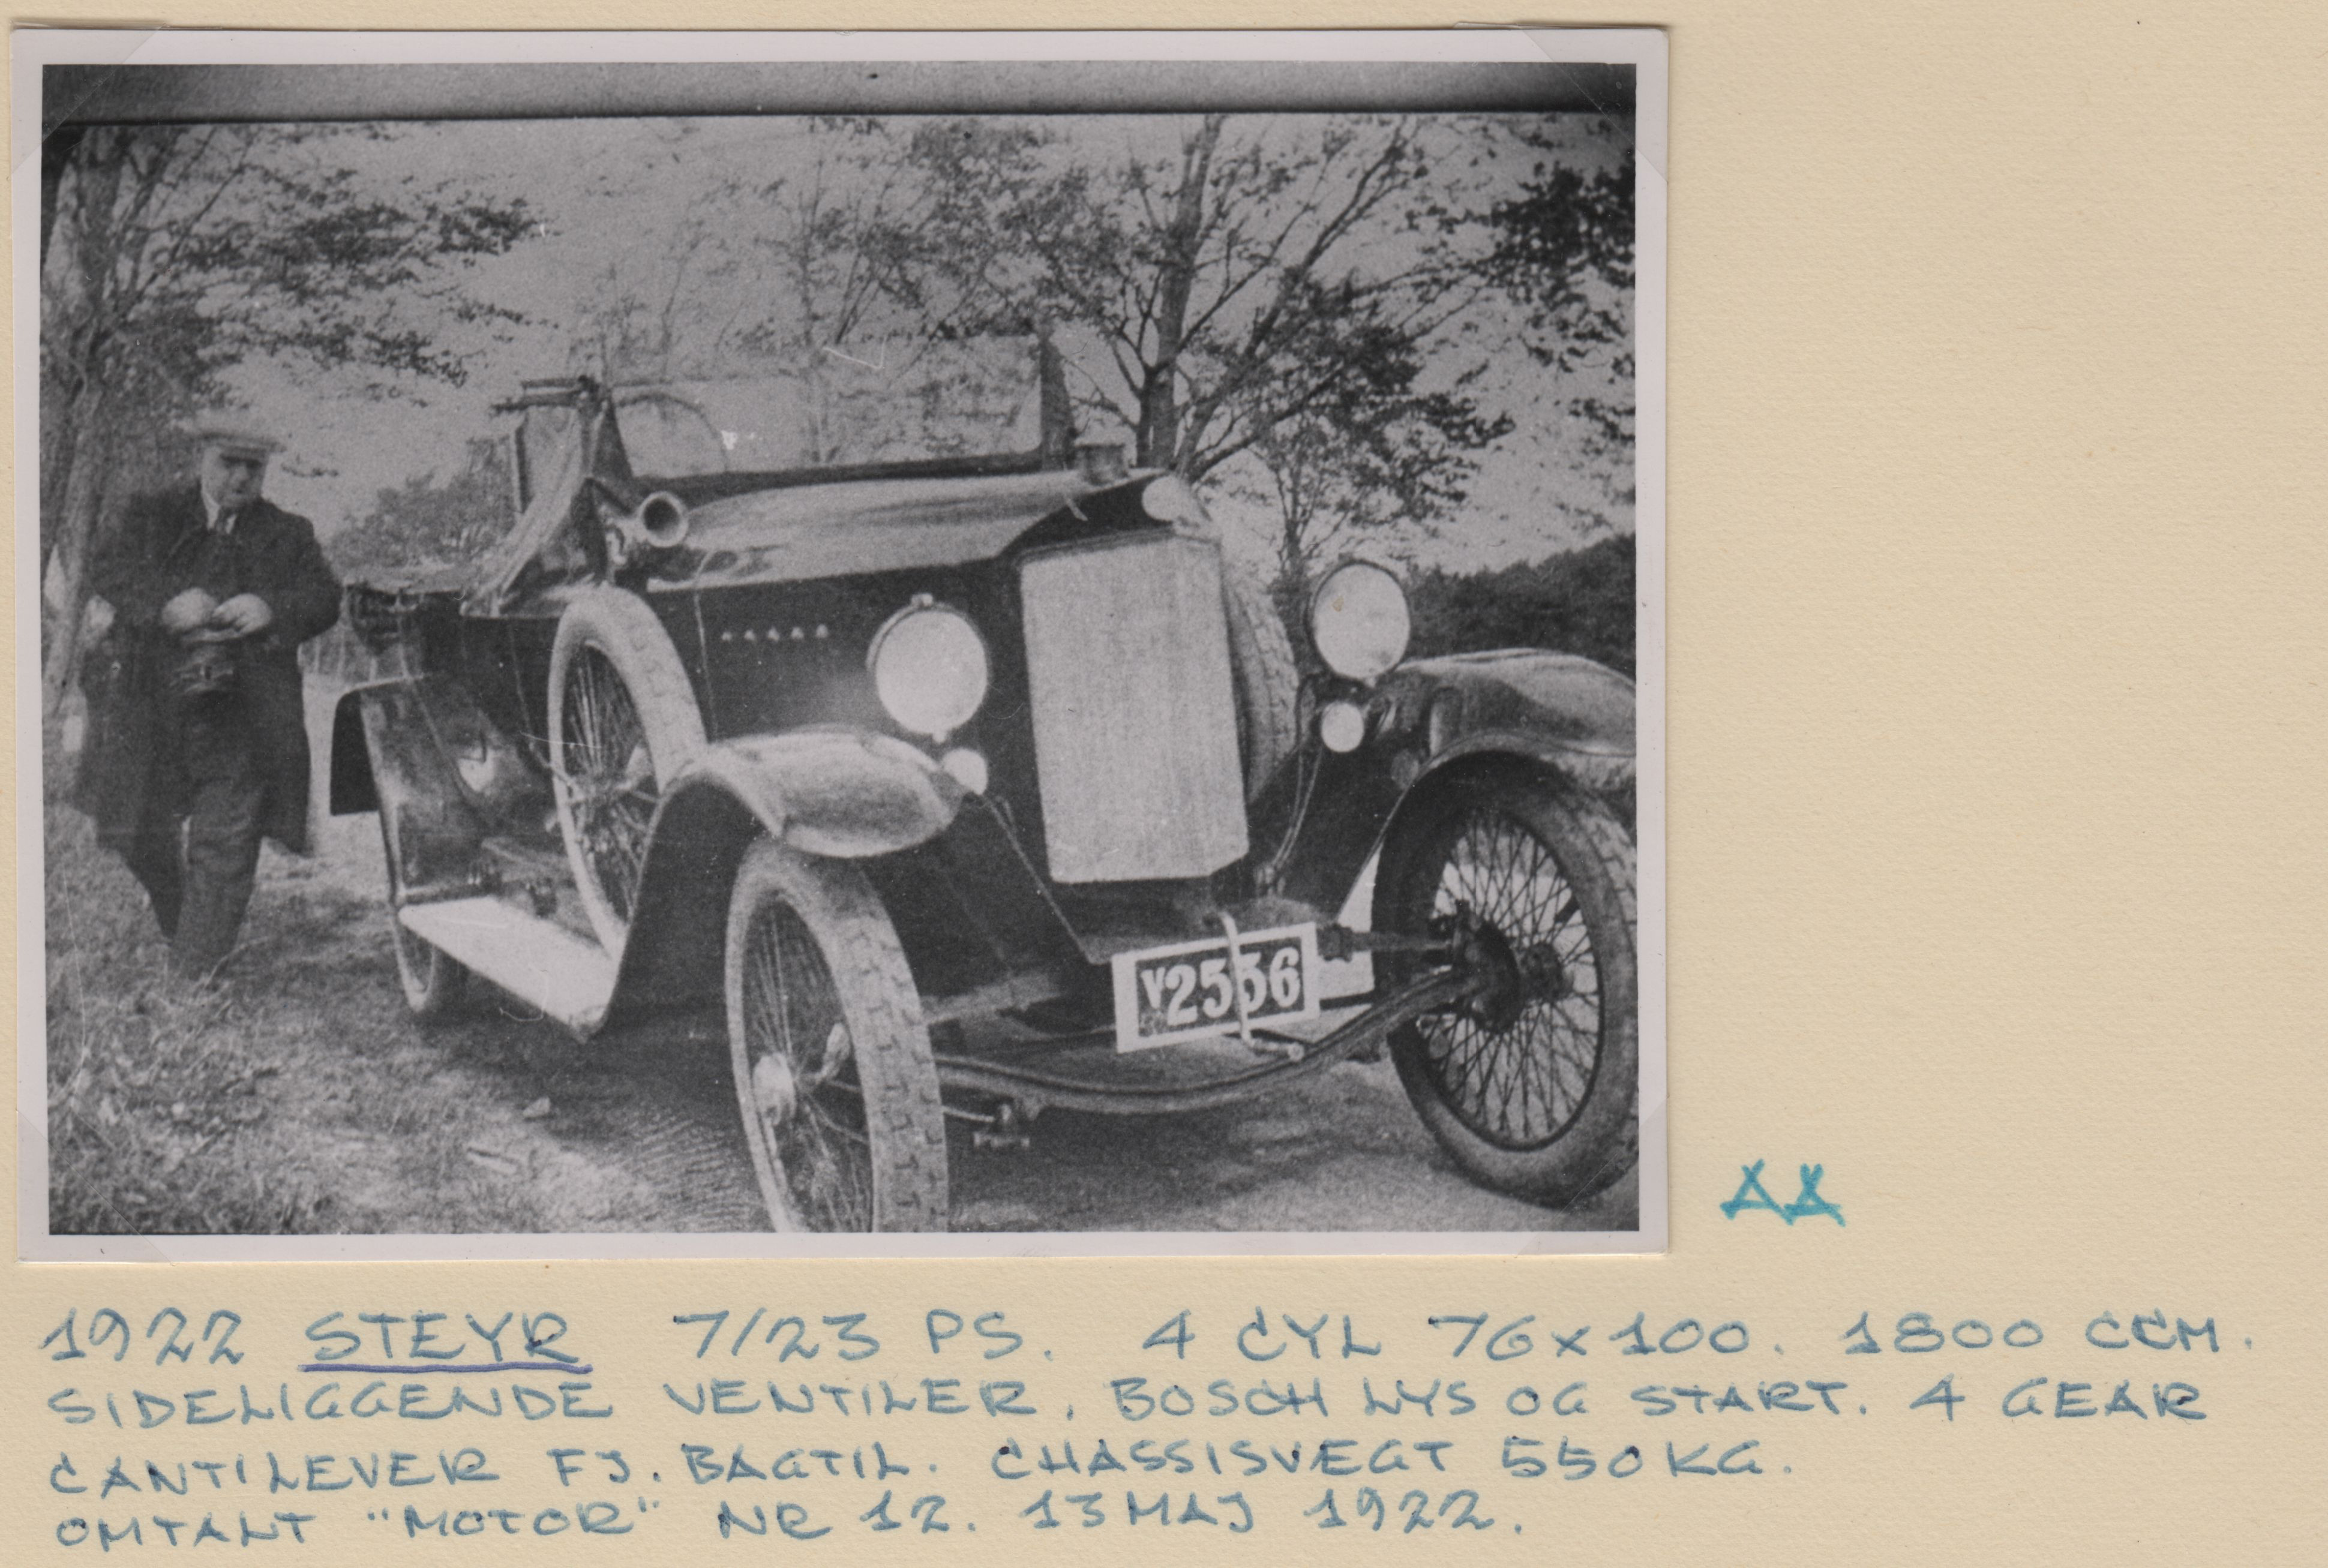 V2536
AA
1922 STEYR 7/23 PS. 4 CYL 76x100. 1800 CCM.
SIDELIGGENDE VENTILER, BOSCH LYS OG START. 4 GEAR
CANTILEVER FJ. BAGTIL. CHASSISVÆGT 550KG.
OMTALT "MOTOR" NR 12. 13 MAJ 1922.